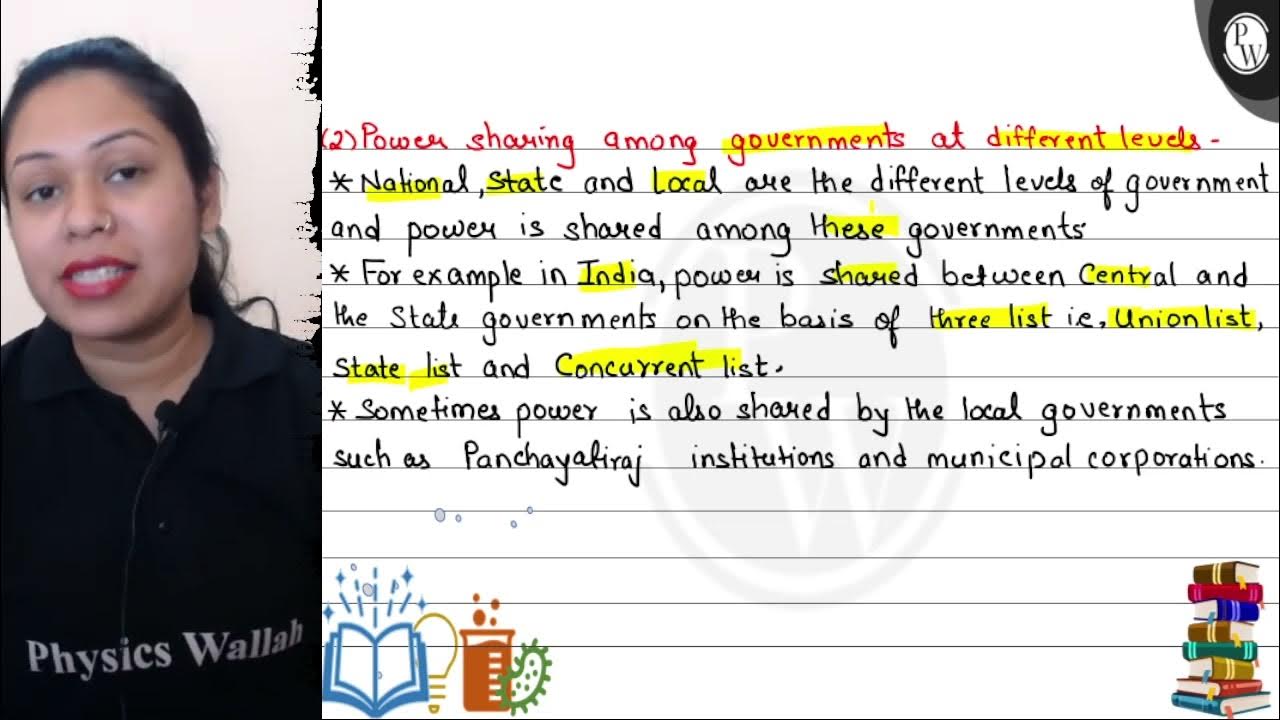 PW
(2) Power sharing among governments at different levels -
* National, State and Local are the different levels of government
and power is shared among these governments.
* For example in India, power is shared between Central and
the State governments on the basis of three list ie, Union list,
State list and Concurrent list.
* Sometimes power is also shared by the local governments
such as Panchayatiraj institutions and municipal corporations.
Physics Wallah